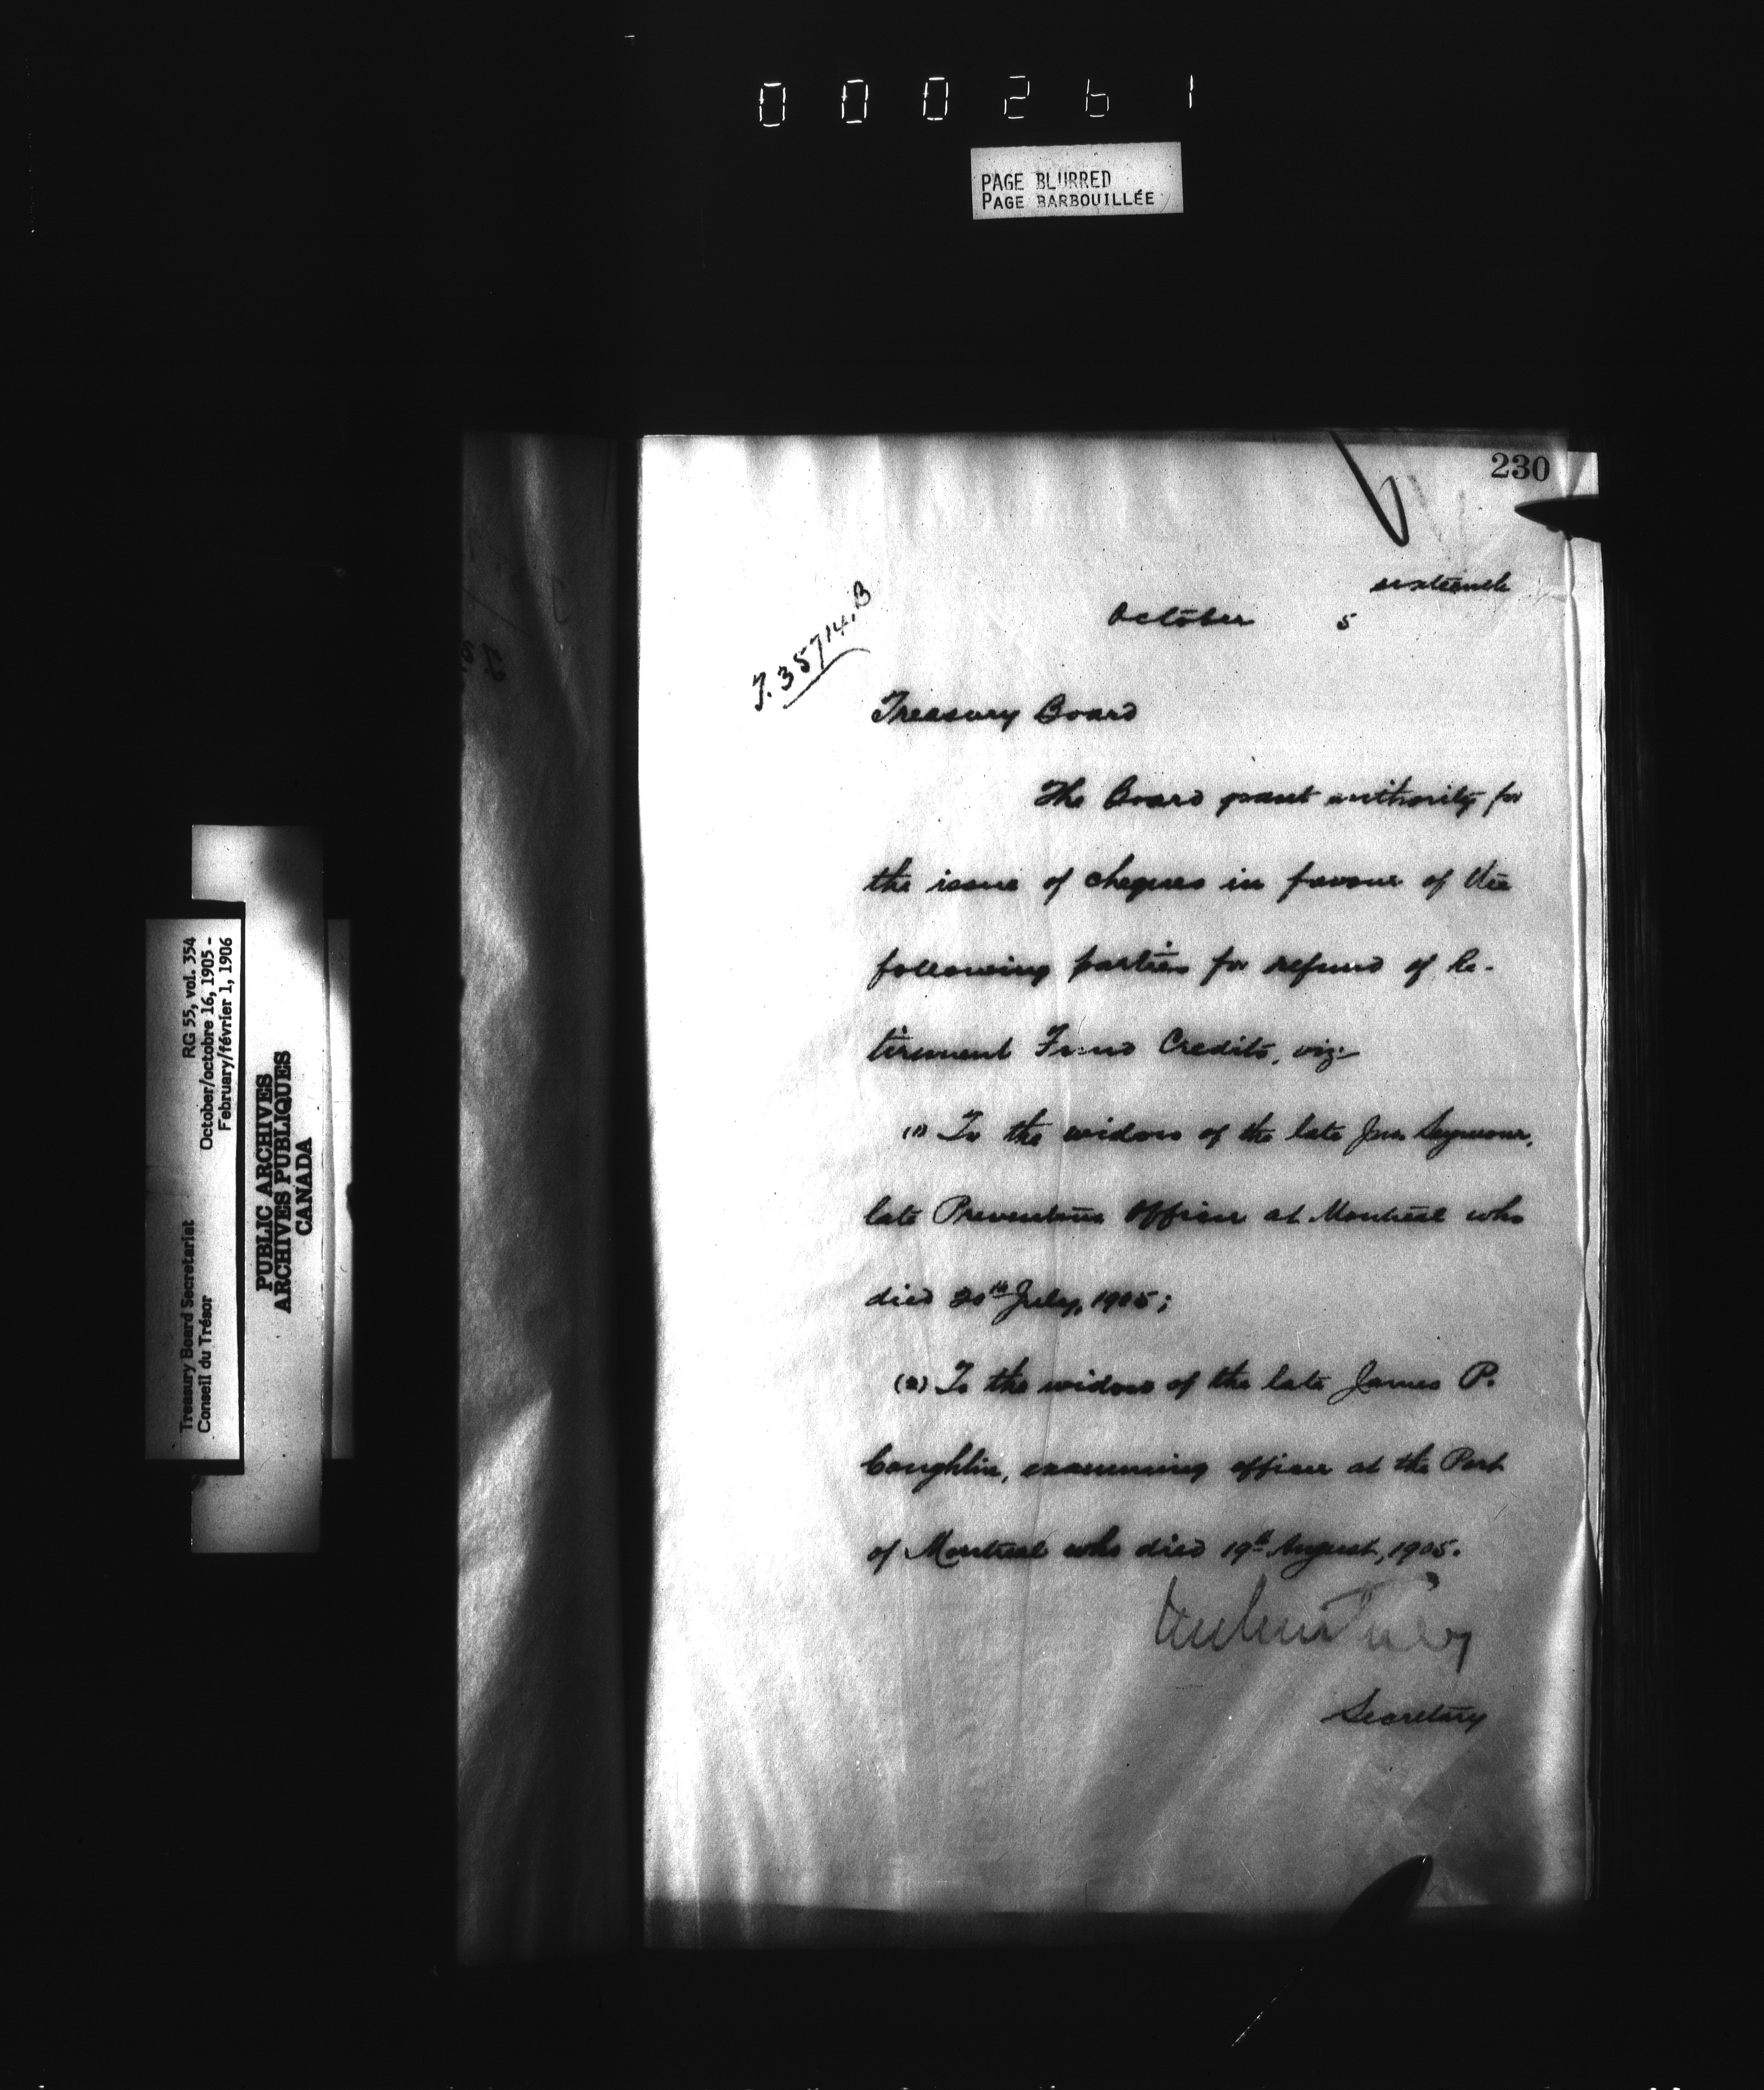 000261
PAGE BLURRED
PAGE BARBOUILLÉE
230
sixteenth
October 5
7.35714.B
Treasury Board
The Board grant authority for
the issue of cheques in favour of the
following parties for refund of Re-
tirement Fund Credits, viz:
(1) To the widow of the late Jno. Seymour,
late Preventive Officer at Montreal who
died 20th July, 1905;
(2) To the widow of the late James P.
Coughlin, examining officer at the Port
of Montreal who died 19th August, 1905.
Secretary
Treasury Board Secretariat RG 55, vol. 354
Conseil du Trésor October/octobre 16, 1905 -
February/février 1, 1906
PUBLIC ARCHIVES
ARCHIVES PUBLIQUES
CANADA